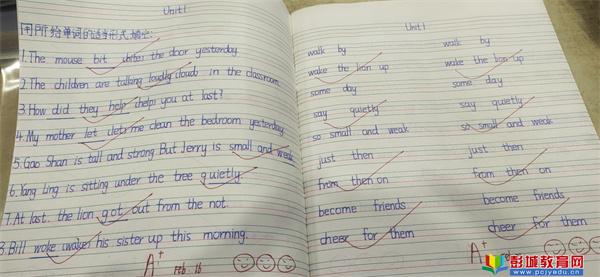 Unit1
用所给单词的适当形式填空:
1.The mouse bit (bite) the door yesterday.
2.The children are talking loudly (loud) in the classroom.
3.How did they help (help) you at last?
4.My mother let (let) me clean the bedroom yesterday.
5.Gao Shan is tall and strong. But Jerry is small and weak.
6.Yang Ling is sitting under the tree quietly.
7.At last. the lion got out from the not.
8.Bill woke (wake) his sister up this morning.
A+ Feb 16
Unit1
walk by
wake the lion up
some day
say quietly
so small and weak
just then
from then on
become friends
cheer for them
walk by
wake the lion up
some day
say quietly
so small and weak
just then
from then on
become friends
cheer for them
A+
彭城教育网
www.pcjyedu.com